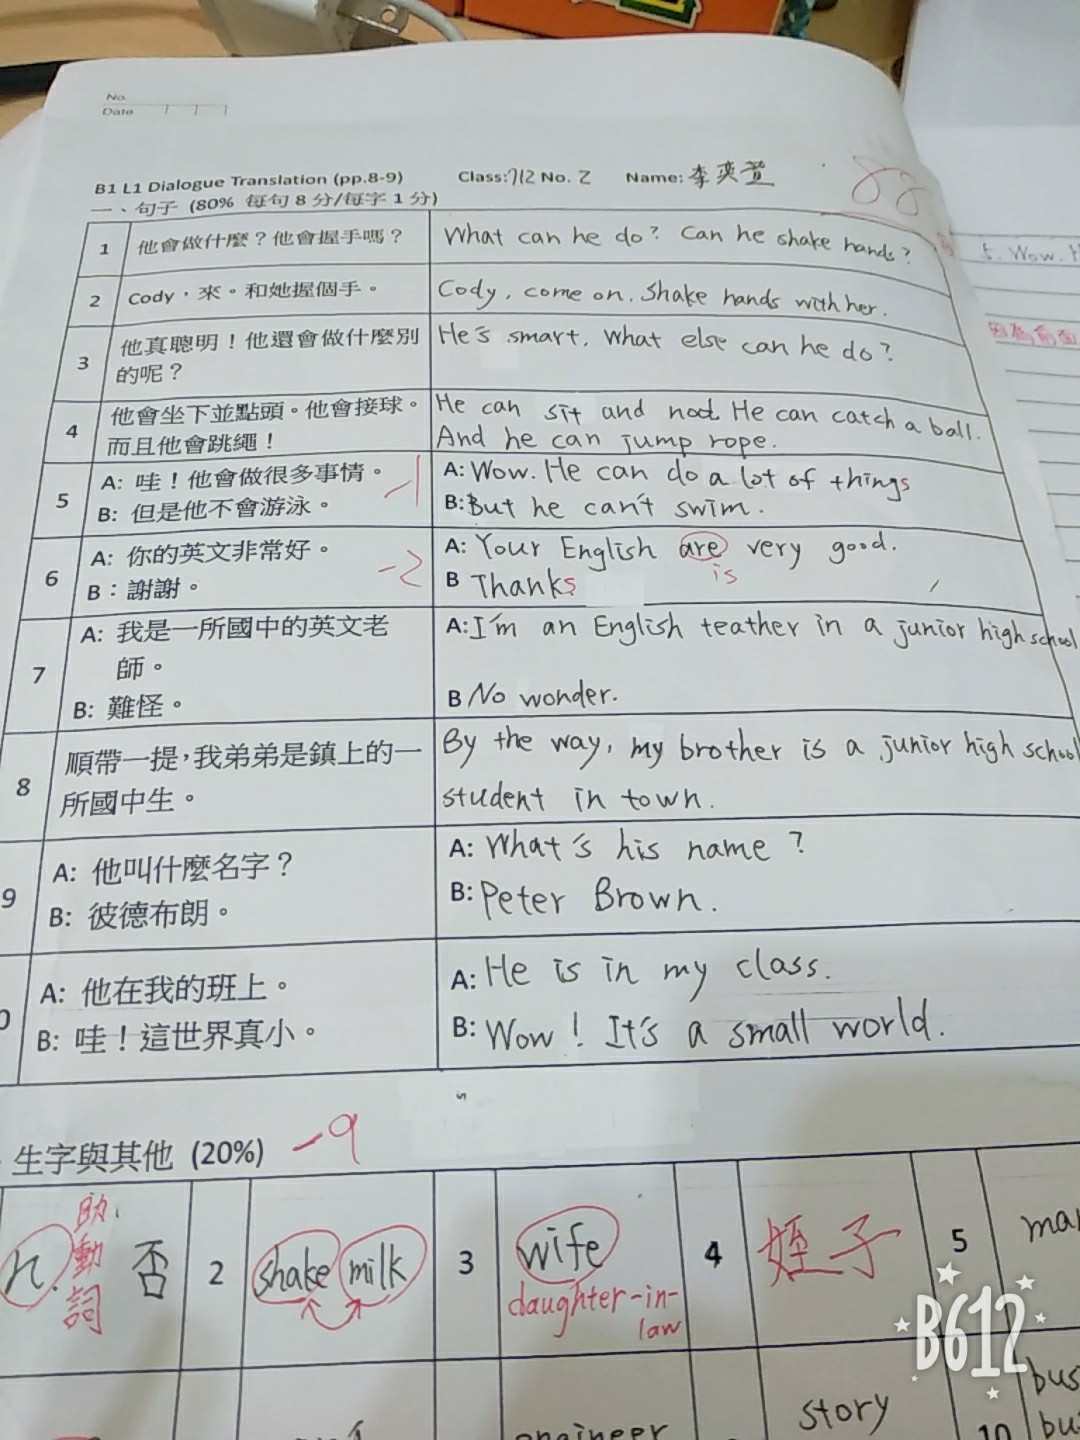 No.
Date
B1 L1 Dialogue Translation (pp.8-9) Class:712 No. 2 Name: 李奕萱
88
一、句子 (80% 每句 8 分/每字 1 分)
1 他會做什麼？他會握手嗎？ What can he do? Can he shake hands?
2 Cody，來。和她握個手。 Cody, come on. Shake hands with her.
3 他真聰明！他還會做什麼別 He's smart. What else can he do?
的呢？
4 他會坐下並點頭。他會接球。 He can sit and nod. He can catch a ball.
而且他會跳繩！ And he can jump rope.
5 A: 哇！他會做很多事情。 -1 A: Wow. He can do a lot of things
B: 但是他不會游泳。 B: But he can't swim.
6 A: 你的英文非常好。 -2 A: Your English are very good.
is
B：謝謝。 B Thanks
7 A: 我是一所國中的英文老 A: I'm an English teather in a junior high school
師。
B: 難怪。 B No wonder.
8 順帶一提，我弟弟是鎮上的一 By the way, my brother is a junior high school
所國中生。 student in town.
9 A: 他叫什麼名字？ A: What's his name?
B: 彼德布朗。 B: Peter Brown.
A: 他在我的班上。 A: He is in my class.
B: 哇！這世界真小。 B: Wow! It's a small world.
生字與其他 (20%) -9
n. 助動詞 否 2 shake milk 3 wife 4 姪子 5 mar
daughter-in-
law
engineer story 10 bus
bu
t. Wow. H
因為前面
B612